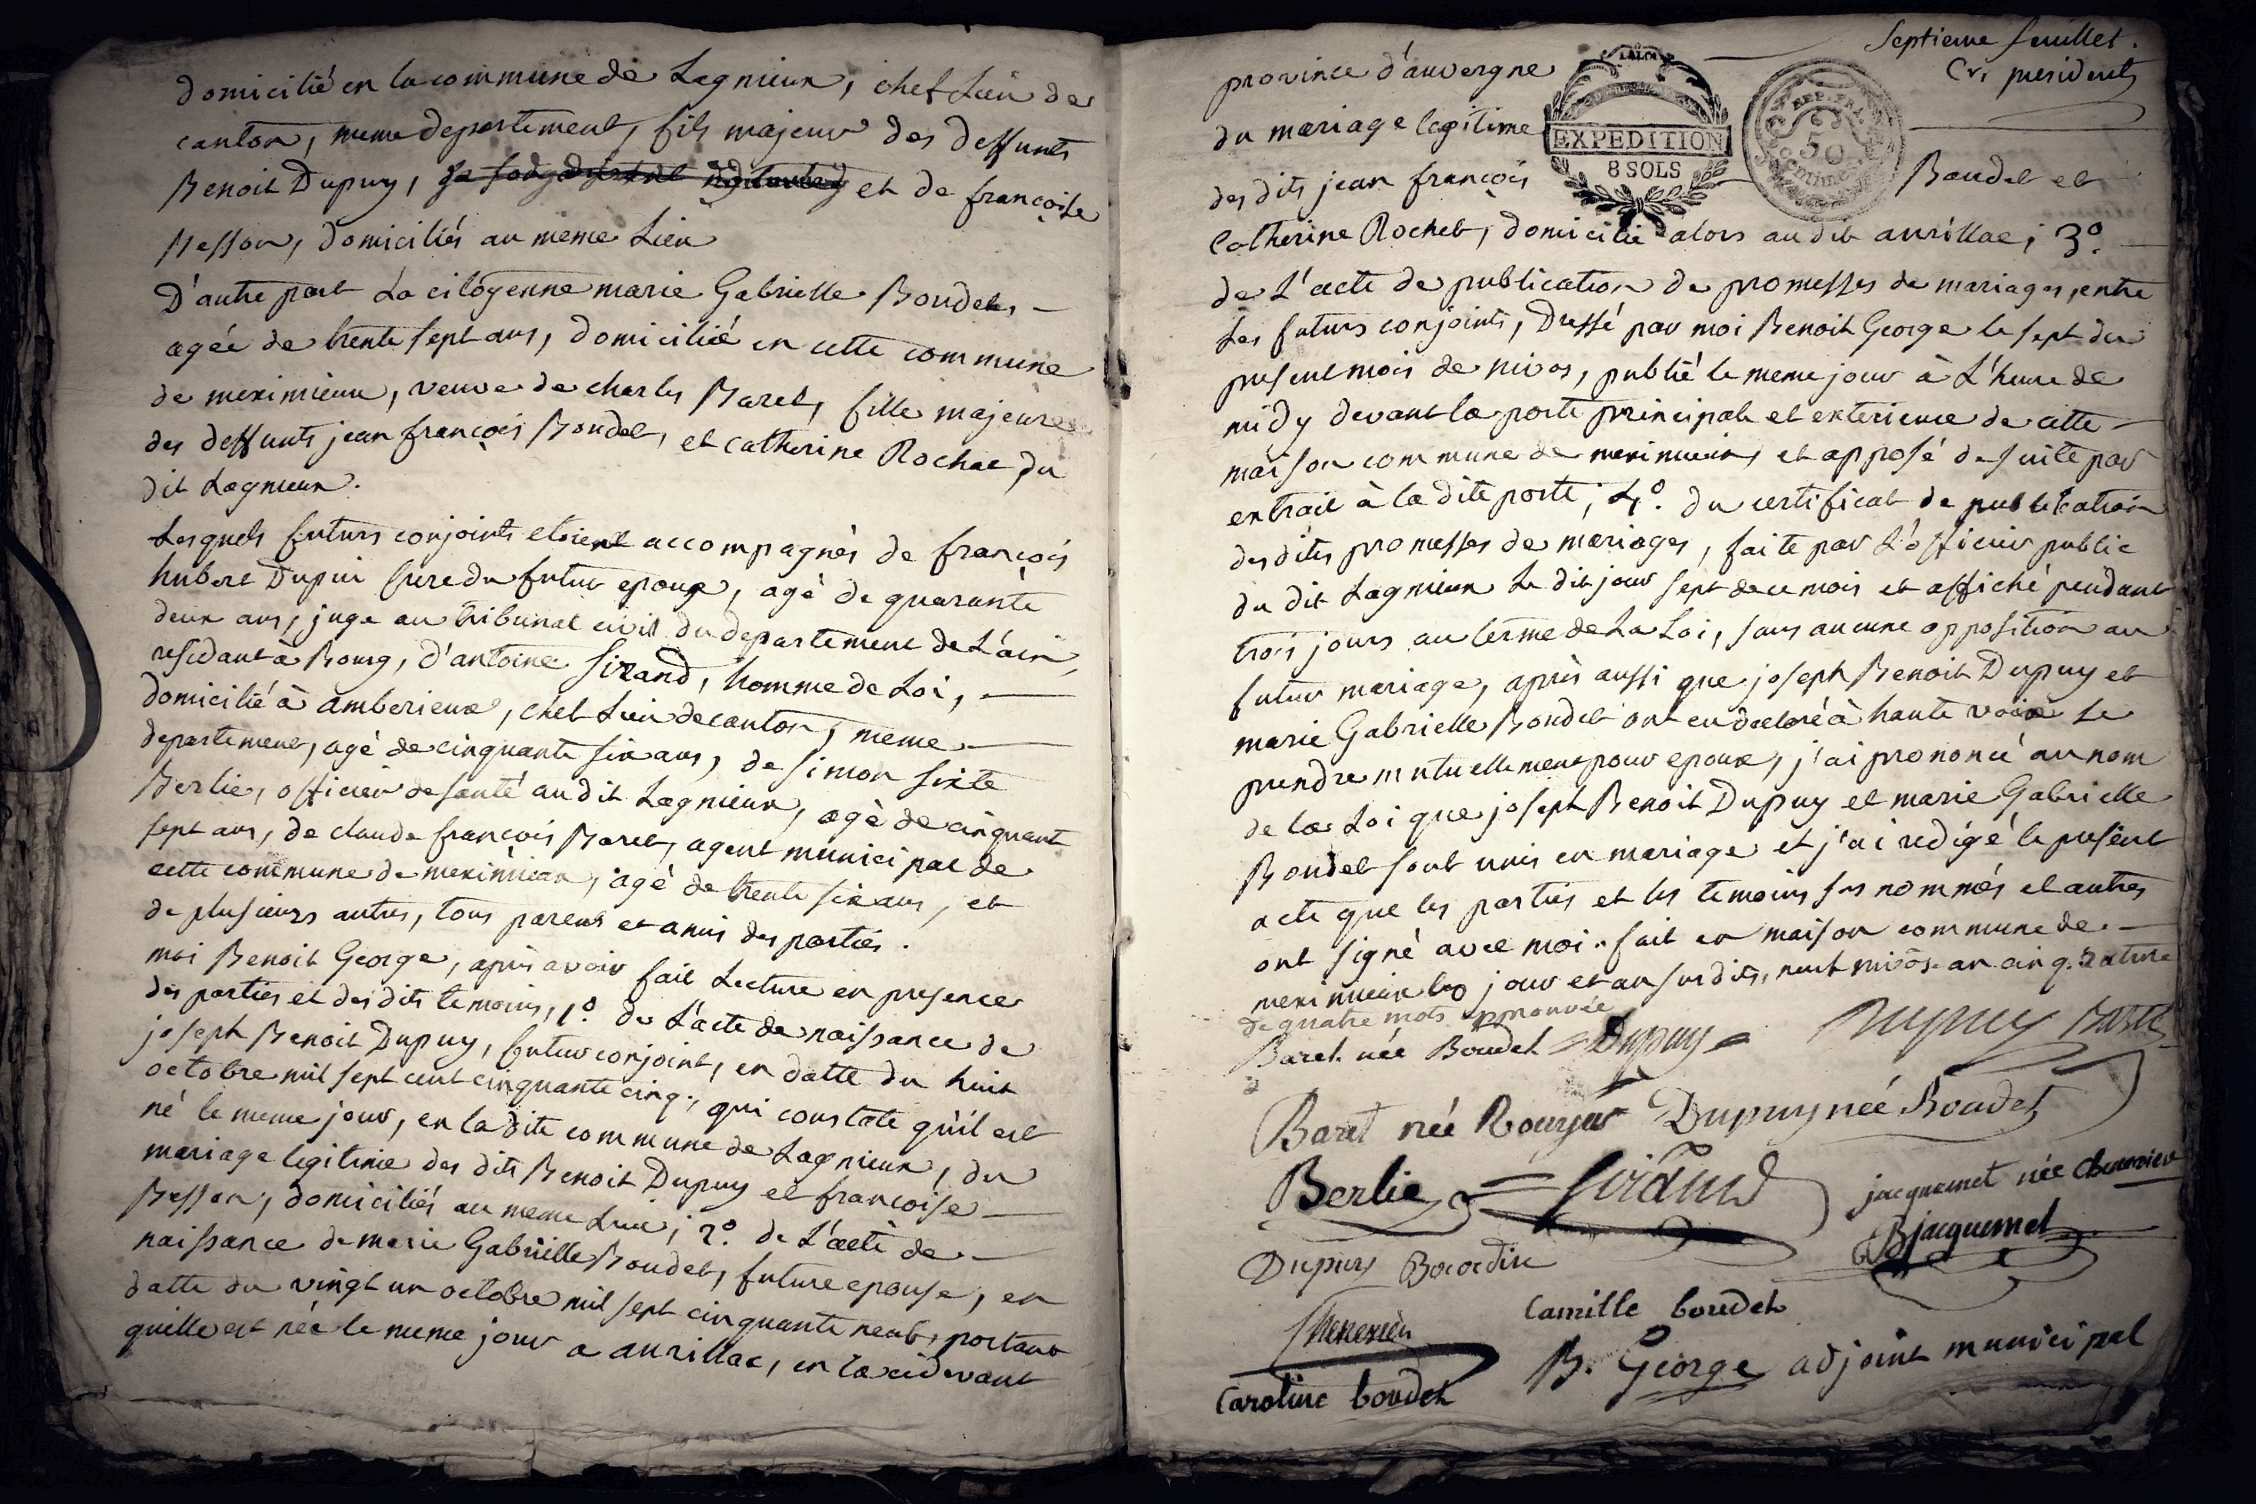 domicilié en la commune de Lagnieux, chef Lieu de
canton, meme departement, fils majeur des deffunts
Benoit Dupuy, et de françoise
Besson, domiciliés au meme Lieu
D'autre part La citoyenne marie Gabrielle Boudet,
agée de trente sept ans, domiciliée en cette commune
de meximieux, veuve de charles Baret, fille majeure
des deffunts jean françois Boudet, et catherine Rochet du
dit Lagnieux.
Lesquels futurs conjoints etoient accompagnés de françois
hubert Dupui frere du futur epoux, agé de quarante
deux ans, juge au tribunal civil du departement de L'ain,
residant à Bourg, d'antoine Sirand, homme de Loi,
domicilié à amberieux, chef Lieu de canton, meme
departement, agé de cinquante six ans, de simon sixte
Berlie, officier de santé au dit Lagnieux, agé de cinquante
sept ans, de claude françois Baret, agent municipal de
cette commune de meximieux, agé de trente six ans, et
de plusieurs autres, tous parens et amis des parties.
moi Benoit George, après avoir fait Lecture en presence
des parties et des dits temoins, 1º. de L'acte de naissance de
joseph Benoit Dupuy, futur conjoint, en datte du huit
octobre mil sept cent cinquante cinq, qui constate qu'il est
né le meme jour, en la dite commune de Lagnieux, du
mariage legitime des dits Benoit Dupuy et françoise
Besson, domiciliés au meme Lieu; 2º. de L'acte de
naissance de marie Gabrielle Boudet, future epouse, en
datte du vingt un octobre mil sept cinquante neuf, portant
quelle est née le meme jour a aurillac, en la cidevant
Septieme feuillet.
Cr. president
province d'auvergne
du mariage legitime
LA LOI
EXPEDITION
8 SOLS
REP. FRA.
50
CENTIMES
des dits jean françois Boudet et
Catherine Rochet, domicilié alors au dit aurillac; 3º.
de L'acte de publication de promesses de mariages, entre
Les futurs conjoints, Dressé par moi Benoit George le sept du
present mois de nivos, publié le meme jour à L'heure de
midy devant la porte principale et exterieure de cette
maison commune de meximieux, et apposé de suite par
extrait à la dite porte; 4º. du certificat de publication
des dites promesses de mariages, faite par L'officier public
du dit Lagnieux Le dit jour sept de ce mois et affiché pendant
trois jours au terme de La Loi, sans aucune opposition au
futur mariage, après aussi que joseph Benoit Dupuy et
marie Gabrielle Boudet ont eu declaré à haute voix Se
prendre mutuellement pour epoux, j'ai prononcé au nom
de la Loi que joseph Benoit Dupuy et marie Gabrielle
Boudet sont unis en mariage et j'ai redigé le present
acte que les parties et les temoins sus nommés et autres
ont signé avec moi. fait en maison commune de
meximieux les jour et an susdits, neuf nivôse an cinq. rature
de quatre mots approuvée
Baret née Boudet Dupuy Dupuy Baret
Baret née Dupuy née Boudet
Berlie Sirand jacquemet née Chenevier
Dupuy Bjacquemet
Chenevier Camille boudet
Caroline boudet B. George adjoint municipal